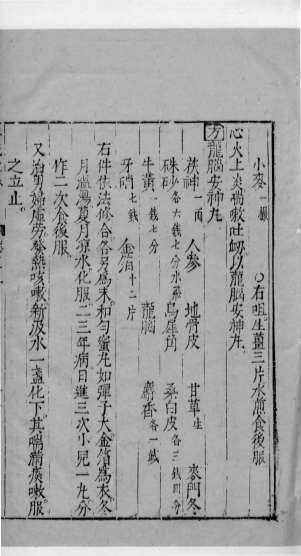 小麥一撮　○右㕮生薑三片水煎食後服
心火上炎痟嗽吐衂以龍腦安神丸
方龍腦安神丸
茯神一兩　人参　地骨皮　甘草生　麥門冬
硃砂各六錢七分水飛　烏犀角　桑白皮各三錢
牛黃一錢七分　龍腦　麝香各一錢
牙硝七錢　金箔十二片
右件依法修合各另為末和勻蜜丸如彈子大金箔為衣冬
月溫湯夏月凉水化服二三年病日進三次小兒一丸分
作二次食後服
又治男婦虚勞發熱咳嗽新汲水一盞化下其喘滿痰嗽服
之立止